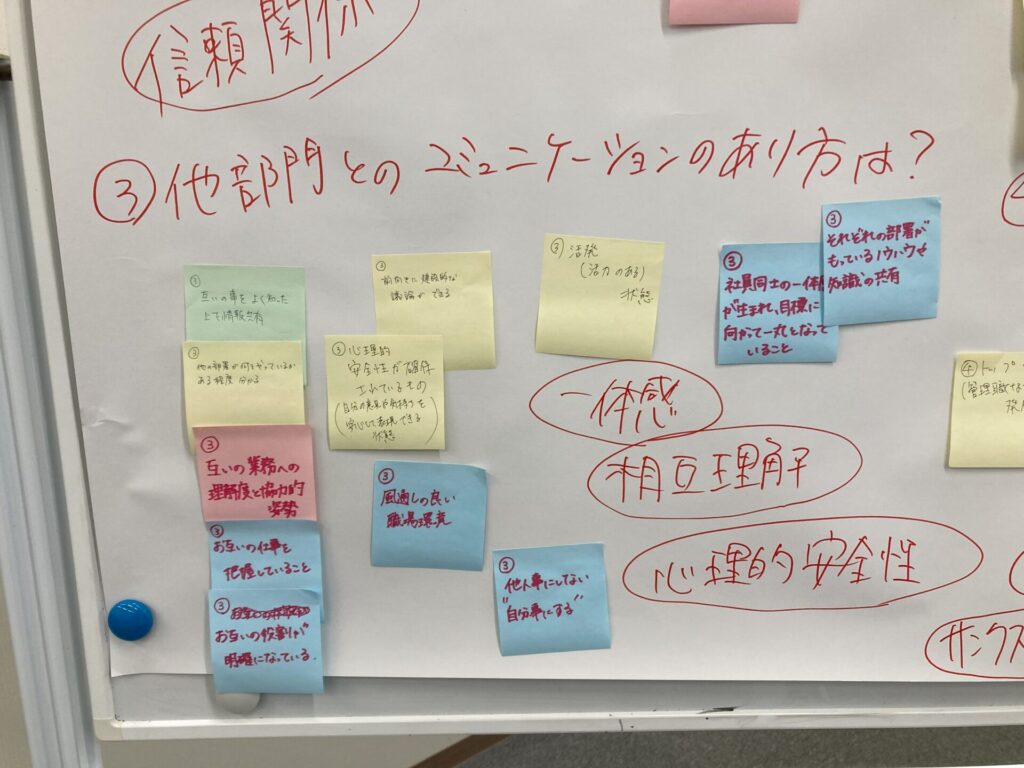 信頼関係
③他部門とのコミュニケーションのあり方は？
互いの事をよく知った
上で情報共有
③
他の部署が何をやっているか
ある程度 分かる
③
互いの業務への
理解度と協力的
姿勢
③
お互いの仕事を
把握していること
③
お互いの役割が
明確になっている。
③
前向きに建設的な
議論ができる
③心理的
安全性が確保
されているもの
(自分の意見や気持ちを
安心して表現できる
状態)
③
風通しの良い
職場環境
③ 活発
(活力のある)
状態
③
他人事にしない
"自分事にする"
③
社員同士の一体
が生まれ、目標に
向かって一丸となって
いること
③
それぞれの部署が
もっているノウハウや
知識の共有
一体感
相互理解
心理的安全性
④トップ
(管理職
サンクス